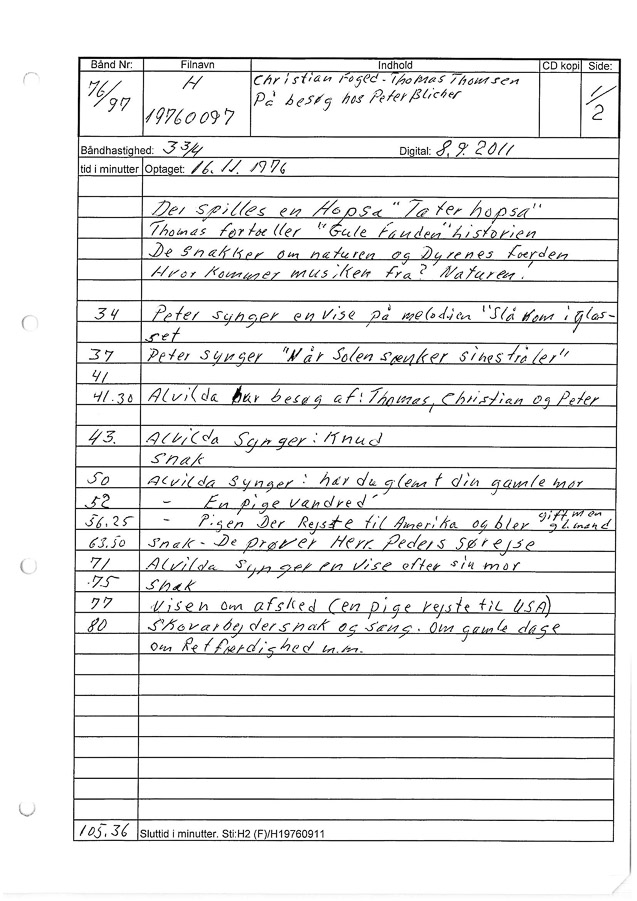 Bånd Nr: Filnavn Indhold CD kopi Side:
76/97 H 19760097 Christian Foged - Thomas Thomsen 1/2
På besøg hos Peter Blicher
Båndhastighed: 3 3/4 Digital: 8.9.2011
tid i minutter Optaget: 16.11.1976
Der spilles en Hopsa "Tater hopsa"
Thomas fortæller "Gule Fanden" historien
De snakker om naturen og Dyrenes færden
Hvor kommer musiken fra? Naturen!
34 Peter synger en vise på melodien "Slå kom i glas-
set
37 Peter synger "Når Solen sænker sine stråler"
41
41.30 Alvilda har besøg af: Thomas, Christian og Peter
43. Alvilda Synger: Knud
Snak
50 Alvilda synger: har du glemt din gamle mor
52 - En pige vandred'
56.25 - Pigen Der Rejste til Amerika og blev gift m en gl. mand
63.50 Snak - De prøver Herr. Peders sørejse
71 Alvilda synger en vise efter sin mor
75 Snak
77 Visen om afsked (en pige rejste til USA)
80 Skovarbejdersnak og sang. om gamle dage
om Retfærdighed m.m.
105.36 Sluttid i minutter. Sti:H2 (F)/H19760911